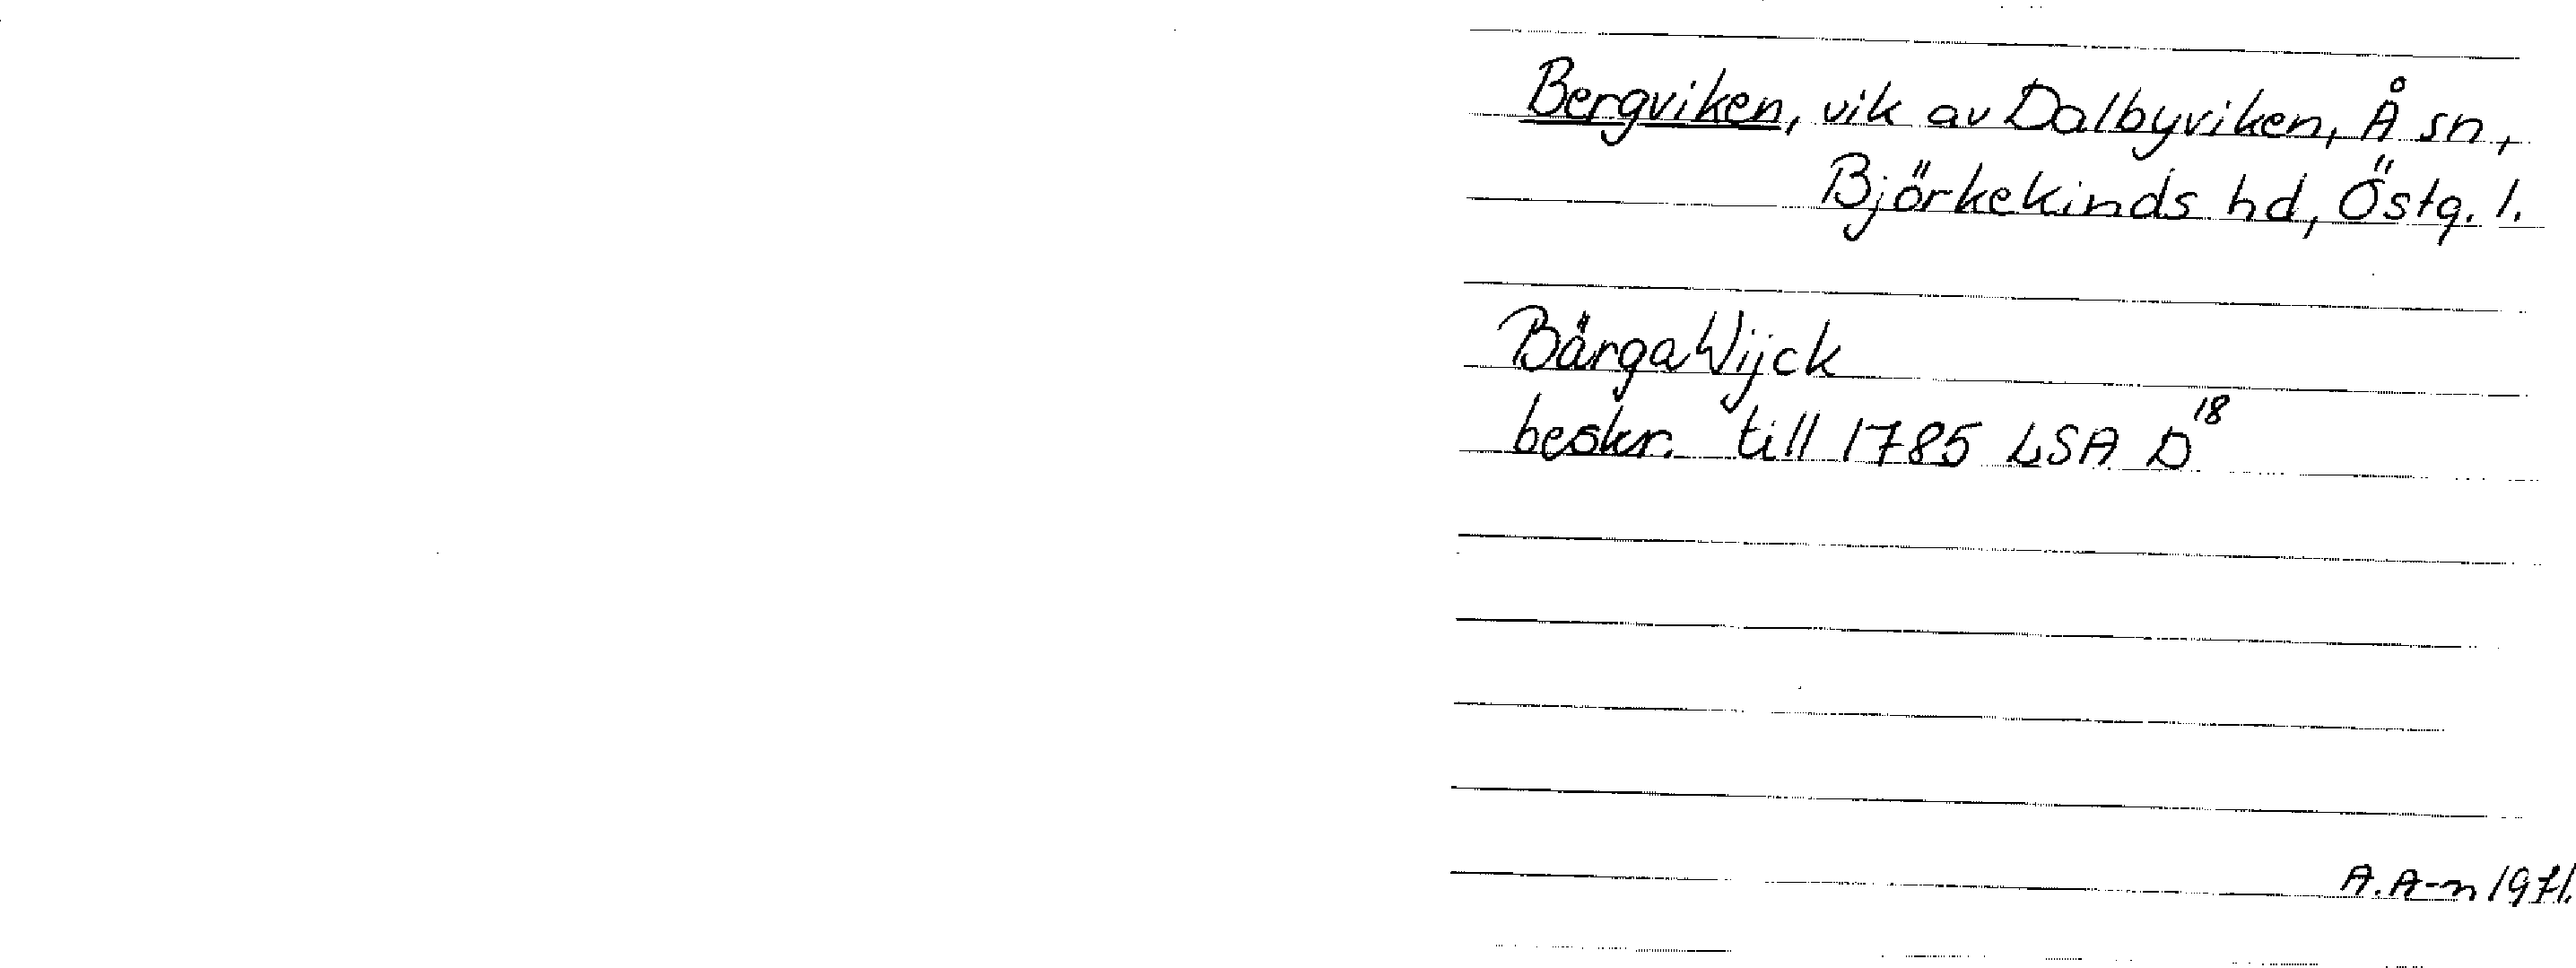 Bergviken, vik av Dalbyviken, Å sn,
Björkekinds hd, Östg. l.
BärgaWijck
beskr. till 1785 LSA D18
A. A-n 1971.